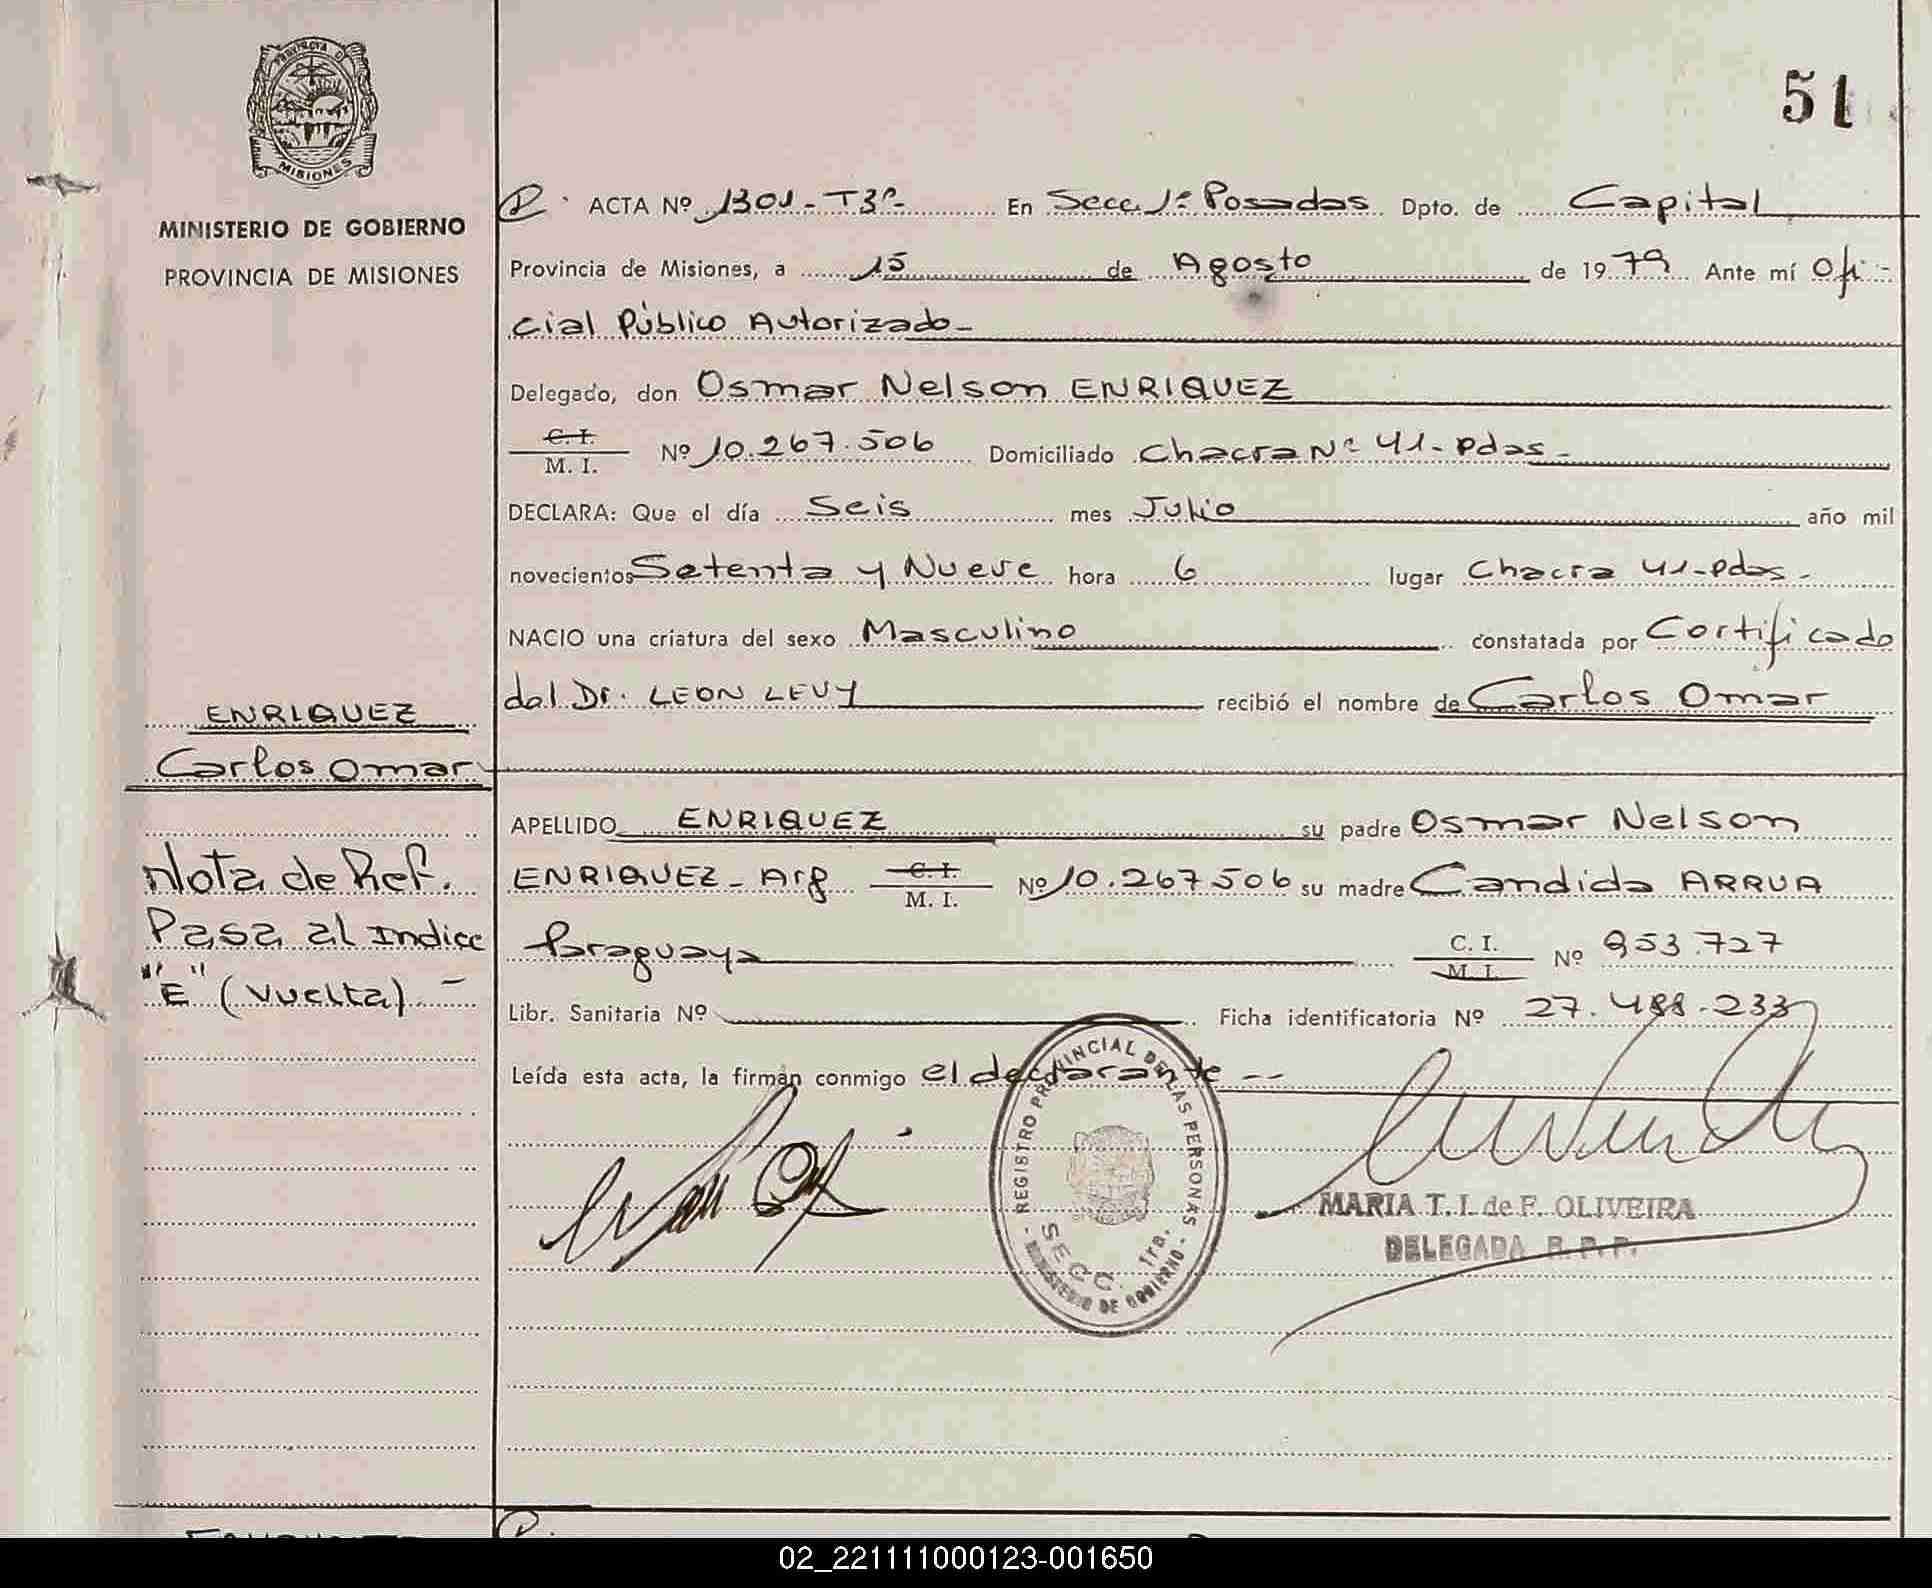 PROVINCIA DE
MISIONES
MINISTERIO DE GOBIERNO
PROVINCIA DE MISIONES
51
ACTA Nº 1301-T3º- En Secc. 1ª Posadas Dpto. de Capital
Provincia de Misiones, a 15 de Agosto de 1979 Ante mí Ofi-
cial Público Autorizado-
Delegado, don Osmar Nelson ENRIQUEZ
C. I.
M. I. Nº 10.267.506 Domiciliado Chacra Nº 41-Pdas-
DECLARA: Que el día Seis mes Julio año mil
novecientos Setenta y Nueve hora 6 lugar Chacra 41-Pdas-
NACIO una criatura del sexo Masculino constatada por Certificado
del Dr. LEON LEVY recibió el nombre de Carlos Omar
ENRIQUEZ
Carlos Omar
APELLIDO ENRIQUEZ su padre Osmar Nelson
ENRIQUEZ - Arg C. I.
M. I. Nº 10.267.506 su madre Candida ARRUA
Paraguaya C. I.
M. I. Nº 953.727
Libr. Sanitaria Nº Ficha identificatoria Nº 27.488.233
Leída esta acta, la firman conmigo el declarante --
Nota de Ref.
Pasa al Indice
"E" (vuelta).-
REGISTRO PROVINCIAL DE LAS PERSONAS
SECC. 1ra.
MINISTERIO DE GOBIERNO
MARIA T. I. de F. OLIVEIRA
DELEGADA R. P. P.
02_221111000123-001650